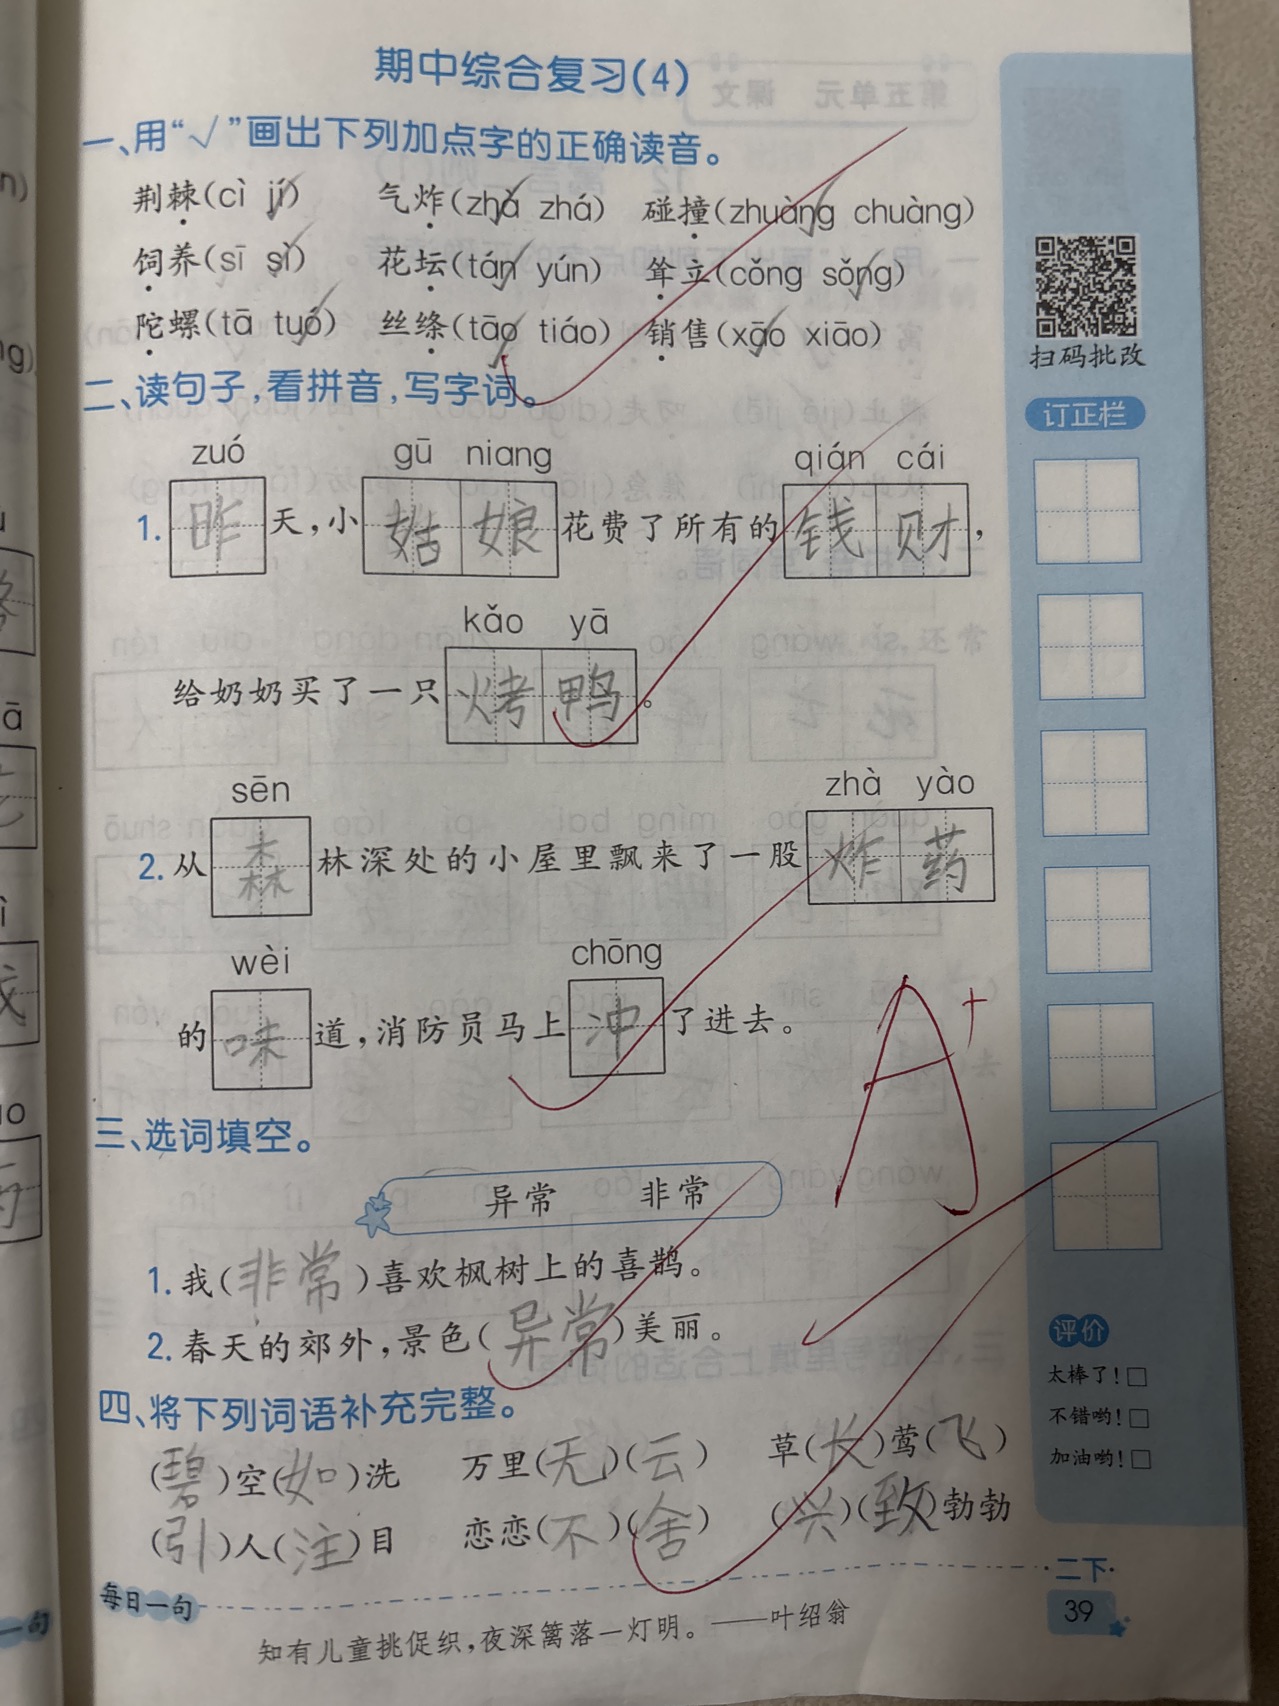 期中综合复习(4)
一、用“√”画出下列加点字的正确读音。
荆棘(cì jí) 气炸(zhà zhá) 碰撞(zhuàng chuàng)
饲养(sī sì) 花坛(tán yún) 耸立(cǒng sǒng)
陀螺(tā tuó) 丝绦(tāo tiáo) 销售(xāo xiāo)
二、读句子,看拼音,写字词。
zuó gū niang qián cái
1. 昨天,小姑娘花费了所有的钱财,
kǎo yā
给奶奶买了一只烤鸭。
sēn zhà yào
2. 从森林深处的小屋里飘来了一股炸药
wèi chōng
的味道,消防员马上冲了进去。
三、选词填空。
异常 非常
1. 我(非常)喜欢枫树上的喜鹊。
2. 春天的郊外,景色(异常)美丽。
四、将下列词语补充完整。
(碧)空(如)洗 万里(无)(云) 草(长)莺(飞)
(引)人(注)目 恋恋(不)(舍) (兴)(致)勃勃
每日一句
知有儿童挑促织,夜深篱落一灯明。——叶绍翁
扫码批改
订正栏
A+
评价
太棒了!□
不错哟!□
加油哟!□
·二下·
39